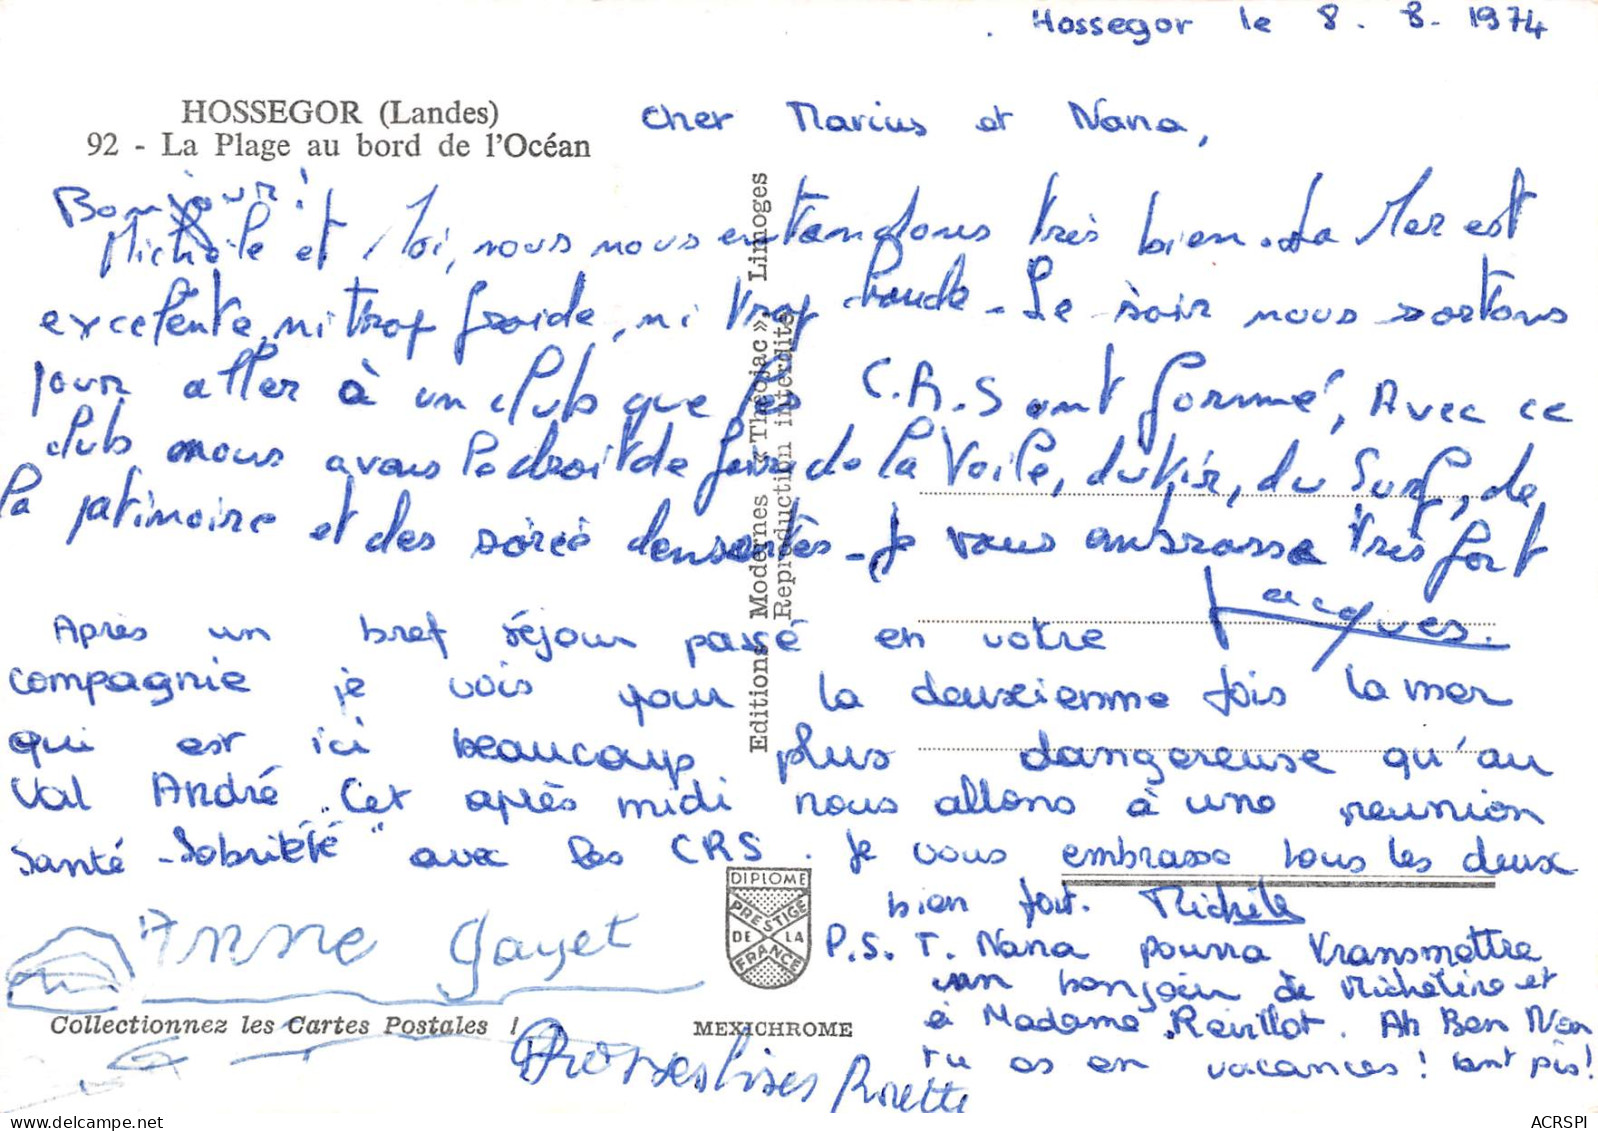 Hossegor le 8. 8. 1974
HOSSEGOR (Landes)
92 - La Plage au bord de l'Océan
Cher Marius et Nana,
Bonjour!
Michèle et Moi, nous nous entandons très bien. La Mer est
excelente, ni trop froide, ni trop chaude - Le soir nous sortons
pour aller à un club que les C.R.S ont formmé, Avec ce
club nous avons le droit de faire de la Voile, du tir, du Surf, de
la patinoire et des soireé densentès - Je vous ambrasse très fort
Jacques.
Après un bref séjour passé en votre
compagnie je vois pour la deuxienme fois la mer
qui est ici beaucoup plus dangereuse qu'au
Val André. Cet après midi nous allons à une reunion
"Santé - Sobriété" avec les CRS. Je vous embrasse tous les deux
bien fort. Michèle
P.S. T. Nana pourra transmettre
un bonjour de Micheline et
à Madame Revillot. Ah Ben Non
tu es en vacances! tant pis!
Anne Gayet
Editions Modernes « Théojac », Limoges
Reproduction interdite
DIPLOME
PRESTIGE
DE LA
FRANCE
Collectionnez les Cartes Postales !
MEXICHROME
ACRSPI